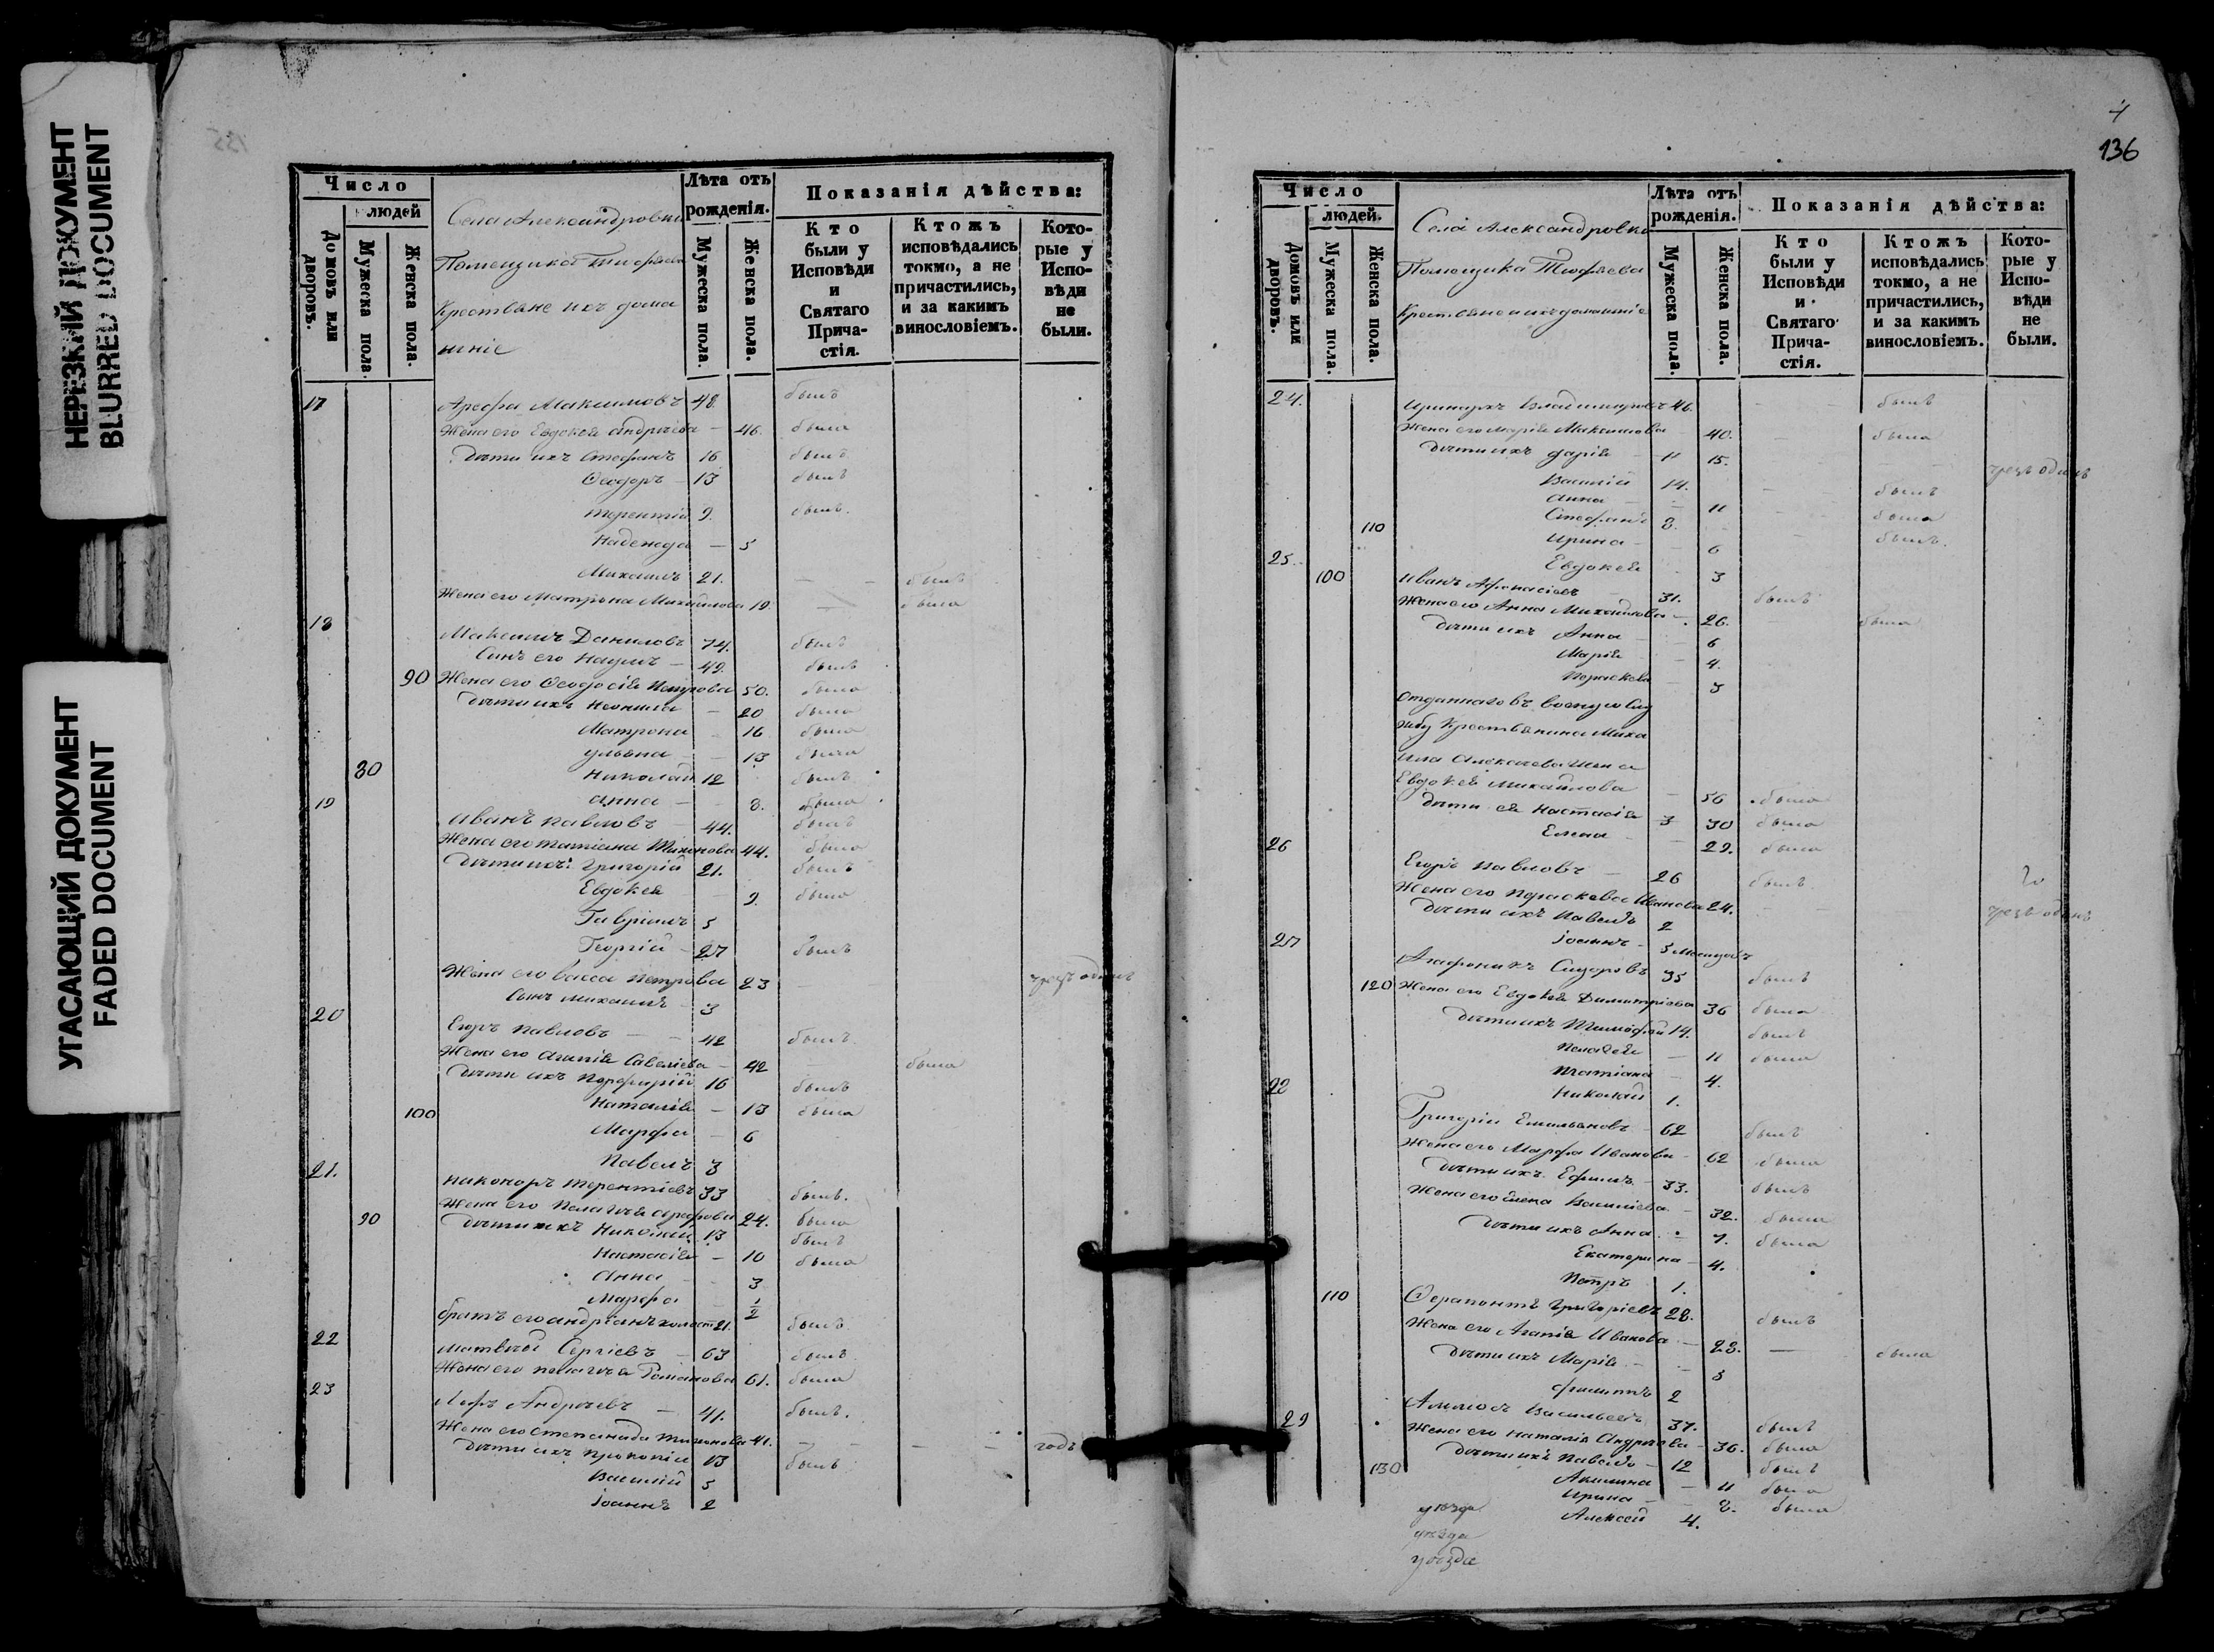 НЕРЕЗКИЙ ДОКУМЕНТ
BLURRED DOCUMENT
УГАСАЮЩИЙ ДОКУМЕНТ
FADED DOCUMENT
Число
людей
Домовъ или дворовъ.
Мужеска пола.
Женска пола.
Села Александровки
Помещика
Крестьяне ихъ дома
шніе
Лѣта отъ рожденія.
Мужеска пола.
Женска пола.
Показанія дѣйства:
Кто были у Исповѣди и Святаго Прича-стія.
Ктожъ исповѣдались токмо, а не причастились, и за какимъ винословіемъ.
Кото-рые у Испо-вѣди не были.
17 Арефа Максимовъ 48. былъ
Жена его Евдокея Андреева – 46. была
Дети ихъ Стефанъ 16 былъ
Ѳеодоръ – 13 былъ
Терентій 9. былъ.
Надежда – 5
Михаилъ 21. – – былъ
Жена его Матрона Михайлова 19 – была
18 Максимъ Даниловъ 74. былъ
Сынъ его Наумъ – 49. былъ
90 Жена его Ѳеодосія Петрова 50. была
Дети ихъ Неонила – 20 была
Матрона – 16 была
Ульяна – 13 была
80 Николай 12 былъ
Анна – 8. была
19 Иванъ Павловъ – 44. былъ
Жена его Татіана Тихонова 44. была
Дети ихъ: Григорій 21. былъ
Евдокея – 9. была
Гавріилъ 5
Георгій – 27 былъ
Жена его Васса Петрова 23 – чрезъ одинъ
Сынъ Михаилъ – 3
20 Егоръ Павловъ – 42 былъ
Жена его Агапія Савеліева – 42 – была
Дети ихъ Порфирій 16 былъ
100 Наталія – 13 была
Марфа – 6
Павелъ 3
21. Никоноръ Терентіевъ 33 былъ.
Жена его Пелагея 24. была
90 Дети ихъ Николай 13 былъ
Настасія – 10 была
Анна – 3
Марфа – ½
братъ его Андріанъ холост 21. былъ
22 Матвей Сергіевъ – 63 былъ
Жена его Пелагея Романова 61. была
23 Андреевъ – 41. былъ.
Жена его Степанида Тихонова 41. – – – – годъ
Дети ихъ Прокопій 13 былъ
Василій 5
Іоаннъ 2
4
136
Число
людей.
Домовъ или дворовъ.
Мужеска пола.
Женска пола.
Села Александровки
Помещика
Крестьяне и ихъ домашніе
Лѣта отъ рожденія.
Мужеска пола.
Женска пола.
Показанія дѣйства:
Кто были у Исповѣди и Святаго Прича-стія.
Ктожъ исповѣдались токмо, а не причастились, и за какимъ винословіемъ.
Кото-рые у Испо-вѣди не были.
24. Иринархъ Владимировъ 46. – – былъ
Жена его Марія Максимова 40. – была
Дети ихъ Дарія – 15. – – чрезъ одинъ
Василій 14. – былъ
Анна – 11 – была
110 Стефанъ 8. – былъ.
Ирина – 6
25. Евдокея 3
100 Иванъ Афанасіевъ – 31. былъ
Жена его Анна Михайлова – 26. – была
Дети ихъ Анна – 6
Марія – 4.
Параскева – 3
Отданнаго въ военную слу
жбу Крестьянина Миха
ила Алексеева жена
Евдокея Михайлова – 56 была
Дети ея Настасія 30 была
Елена – 29. была
26 Егоръ Павловъ – 26 былъ
Жена его Параскева Иванова 24. – – чрезъ одинъ
Дети ихъ Павелъ 2
Іоаннъ – 5 месяцовъ
27 Агафоникъ Сидоровъ 35 былъ
120 Жена его Евдокея Димитріева 36 была
Дети ихъ Тимофей 14. былъ
Пелагея – 11 была
Татіана – 4.
Николай 1.
22 Григорій Емельяновъ – 62 былъ
Жена его Марфа Иванова – 62 была
Дети ихъ Ефимъ – 33. былъ
Жена его Елена Василіева – 32. была
Дети ихъ Анна – 7. была
Екатерина – 4.
Петръ 1.
110 Ферапонтъ Григоріевъ 28. былъ
Жена его Агапія Иванова – 28. – была
Дети ихъ Марія – 5
Филиппъ 2
29 Васильевъ 37. былъ
Жена его Наталія Андреева – 36. была
Дети ихъ Павелъ – 12 былъ
130 Акилина – 11 была
Ирина – 8. была
Алексей 4.
уезда
уезда
уезда